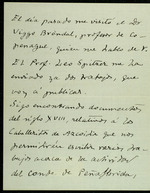 El día pasado me visitó el Dr
Viggo Brøndel, profesor de Co-
penague, quien me habló de V.
El Prof. Leo Spitzer me ha
enviado ya dos trabajos, que
voy a publicar.
Sigo encontrando documentos
del siglo XVIII, relativos a los
Caballeritos de Azcoitia que nos
permitirán escribir varios tra-
bajos acerca de la actividad
del conde de Peñaflorida,